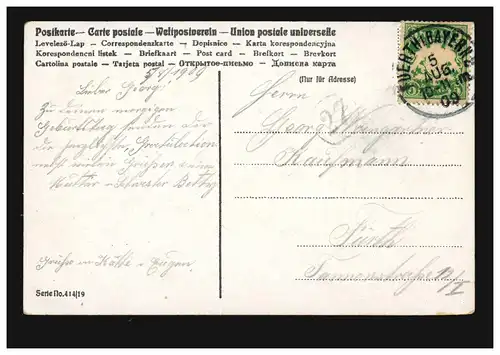 Postkarte – Carte postale – Weltpostverein – Union postale universelle
Levelező-Lap – Correspondenzkarte – Dopisnice – Karta korespondencyjna
Korespondencni listek – Briefkaart – Post card – Brefkort – Brevkort
Cartolina postale – Tarjeta postal – ОТКРЫТОЕ-ПИСЬМО – Дописна карта
(Nur für Adresse)
5/8/1909
Lieber Georg!
Zu deinem morgigen
Geburtstag senden wir
die herzlichsten Gratulationen
Mutter u. Schwester Betty
Grüße v. Käthe u. Eugen
Serie No. 414/19
FUERTH (BAYERN) 2
5
AUG
09
Herrn
Georg
Kaufmann
Fürth
Tannenstrasse